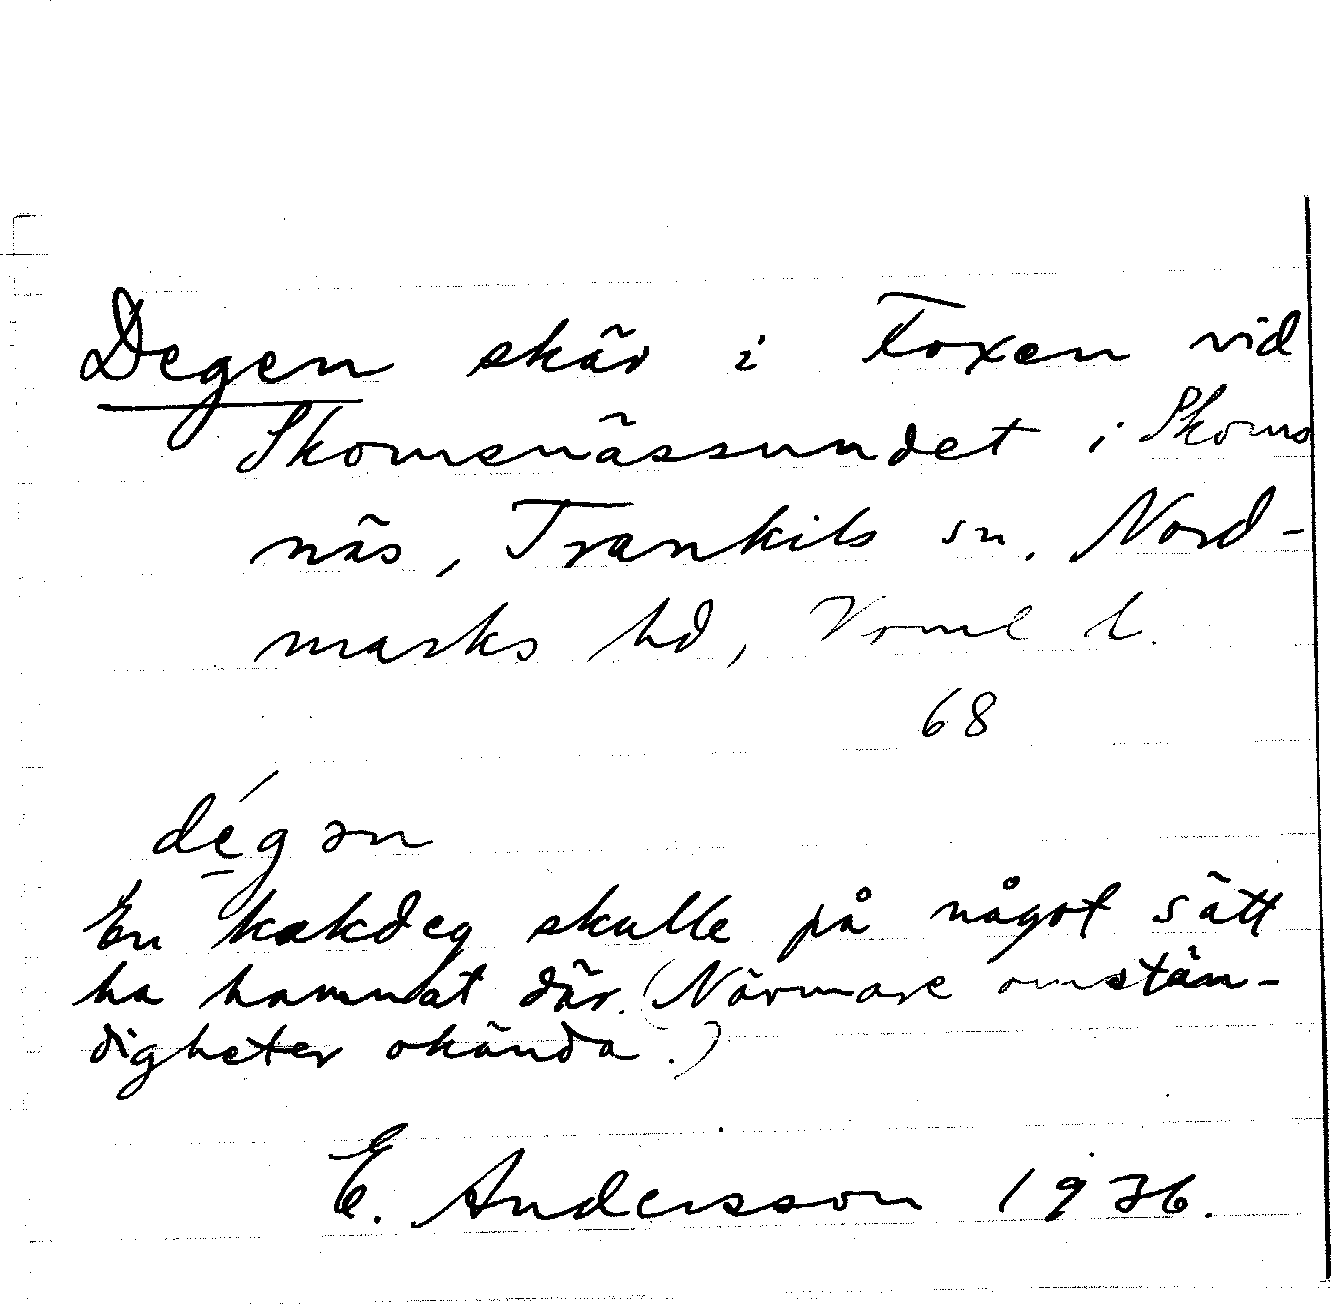 Degen skär i Foxen vid
Skomsnässundet i Skoms
näs, Trankils sn, Nord-
marks hd, Vrml l.
68
dégən
En kakdeg skulle på något sätt
ha hamnat där. (Närmare omstän-
digheter okända.)
E. Andersson 1936.